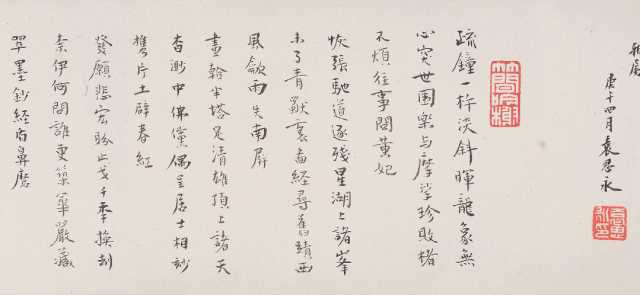 雅屬
庚午四月袁思永
疏鐘一杵淡斜暉龍象無
心哭世圍樂与摩挲珍敗楮
不煩往事問黃妃
恢張馳道逐殘星湖上諸峯
未了青獸裹畚經尋舊蹟西
風歙雨失南屏
畫榦半塔足清雄頂上諸天
杳渺中佛黨偶呈居士相刼
攜片土辟春紅
發願悲宏盼止戈千年換刧
柰伊何問誰更築華嚴藏
翠墨鈔經盾鼻磨